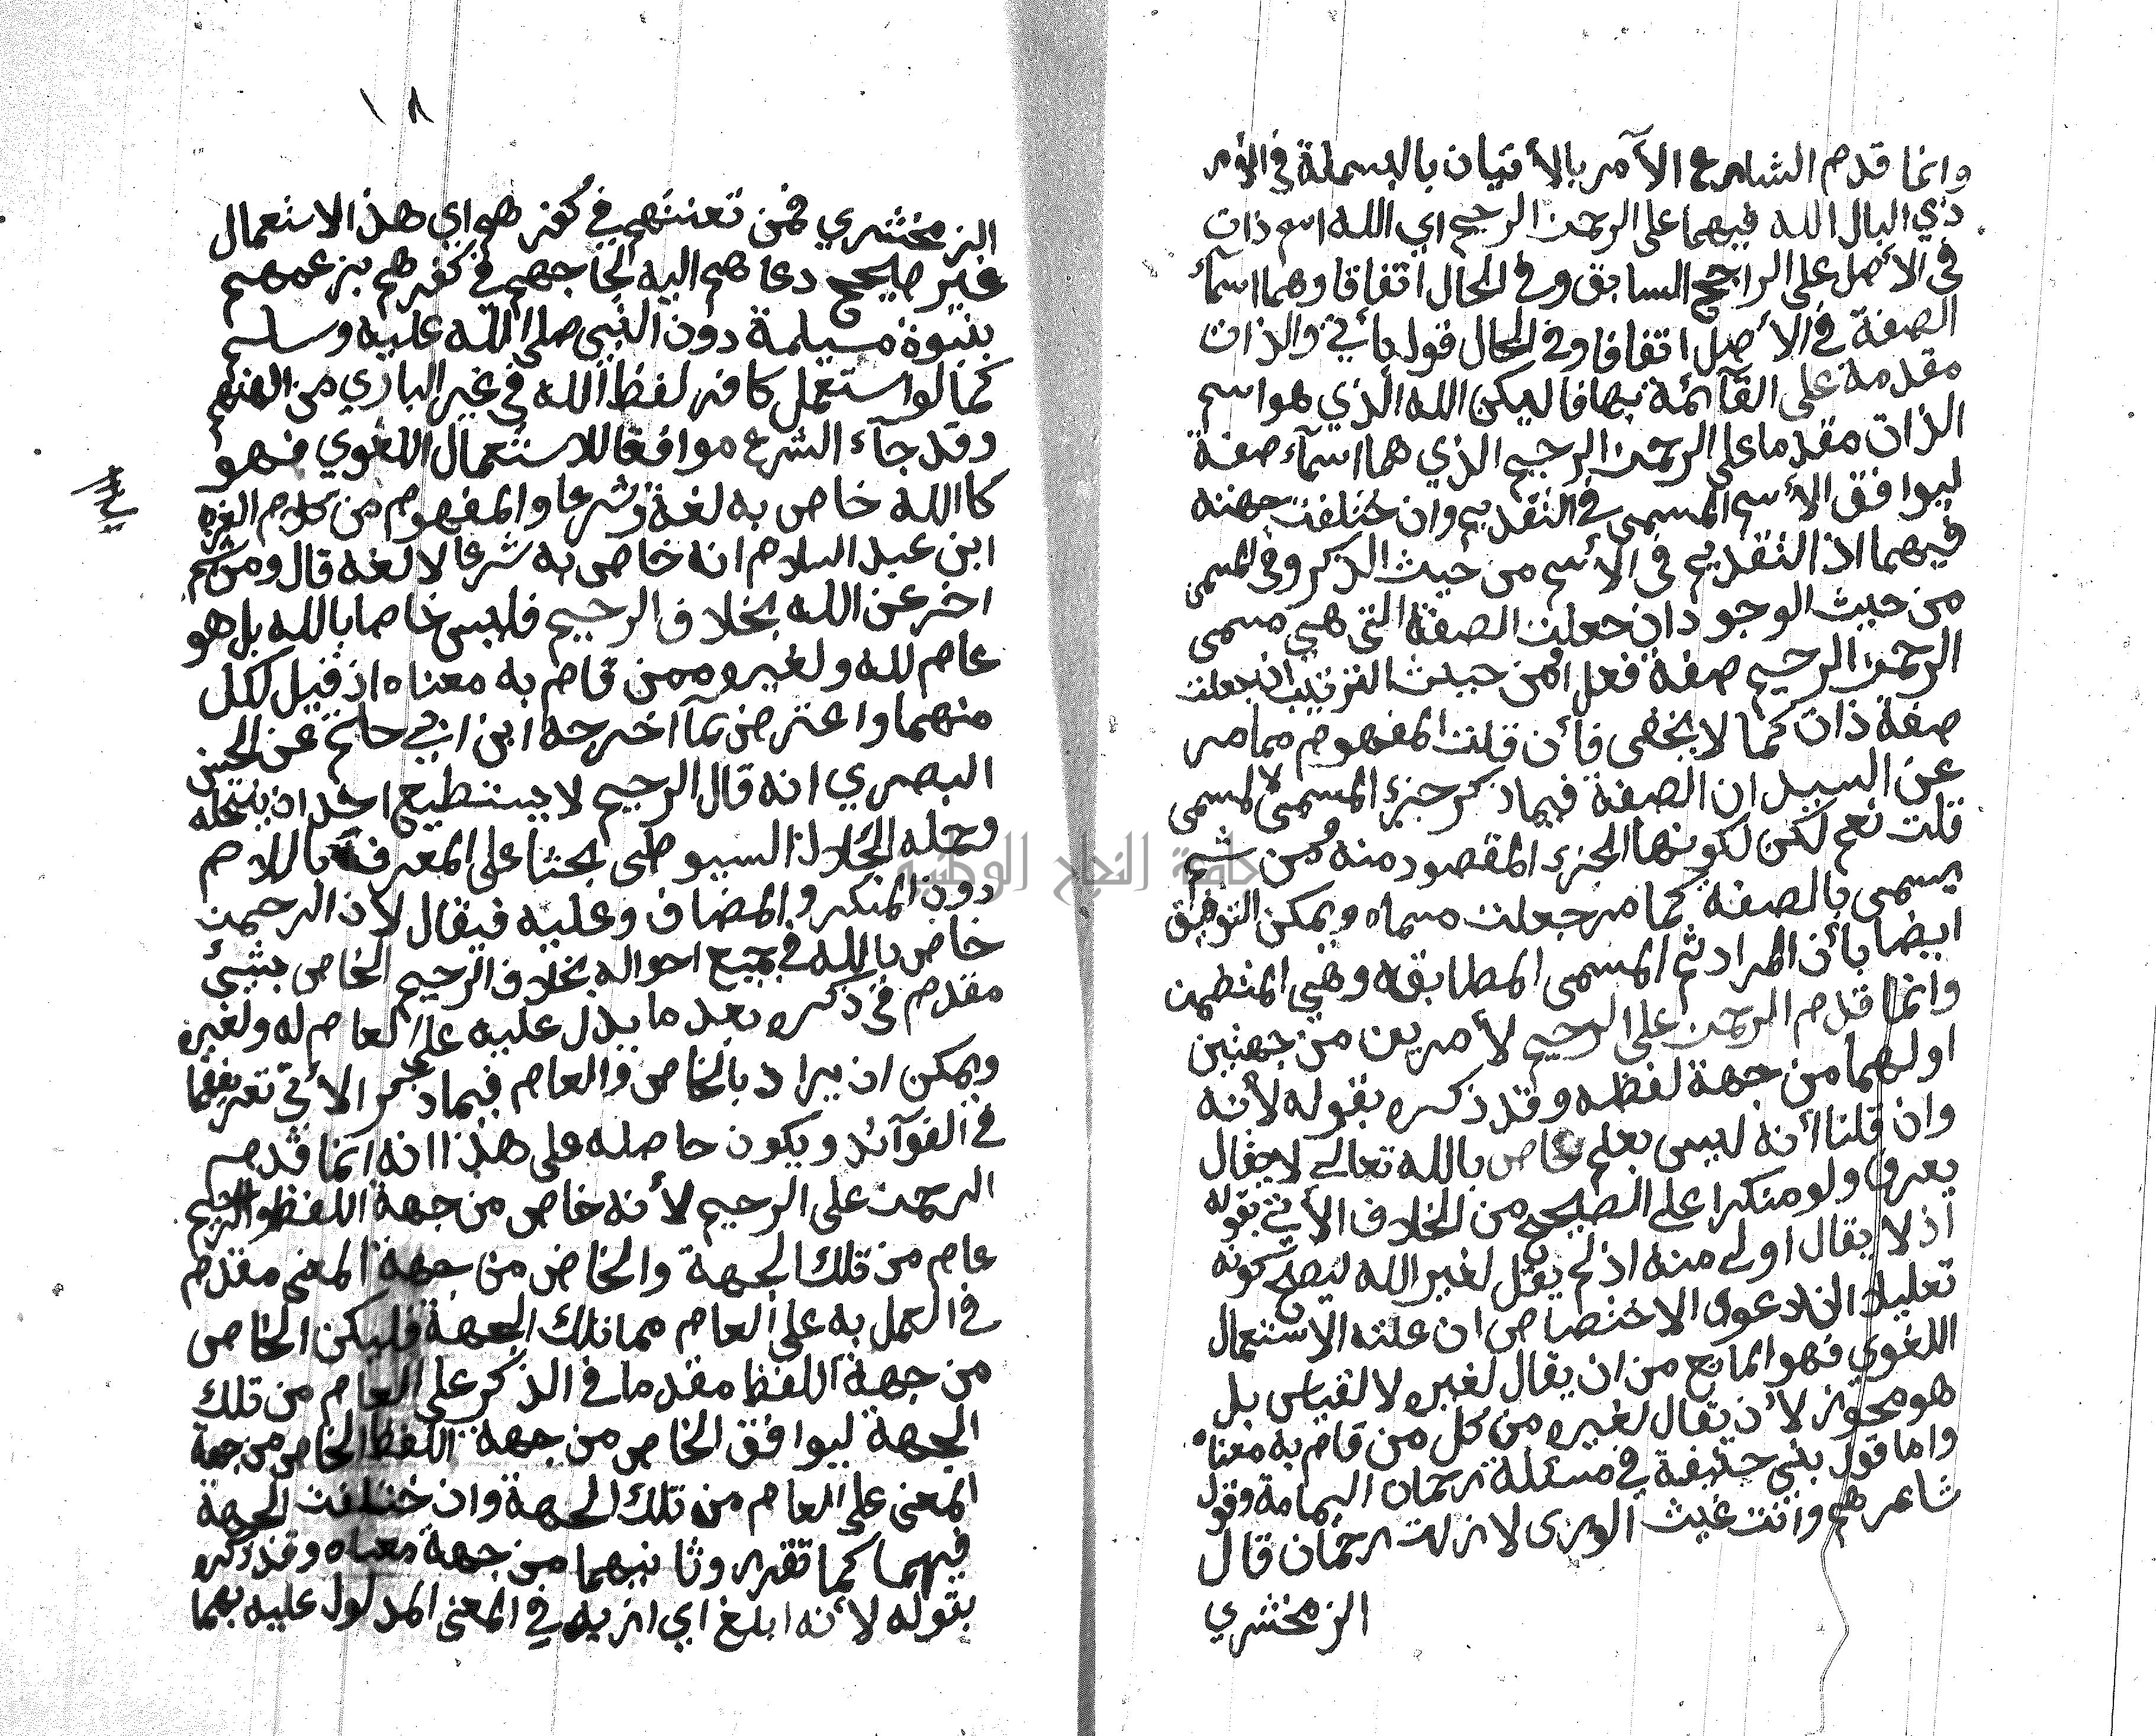 وانما قدم الشارع الآمر بالأتيان بالبسملة في الأمر
ذي البال الله فيهما على الرحمن الرحيم اي الله اسم ذات
في الأصل على الراجح السابق وفي الحال اتفاقا وهما اسمآ
الصفة في الأصل اتفاقا وفي الحال قول يأتي والذات
مقدمة على القآئمة بها فاليكن الله الذي هو اسم
الذات مقدما على الرحمن الرحيم الذي هما اسمآء صفة
ليوافق الأسم المسمى في التقديم وان ختلفت جهته
فيهما اذ التقديم في الأسم من حيث الذكر وفي المسمى
من حيث الوجود ان جعلت الصفة التي هي مسمى
الرحمن الرحيم صفة فعل او من حيث الترتيب ان جعلت
صفة ذات كما لا يخفى فأن قلت المفهوم مما مر
عن السيد ان الصفة فيما ذكر جزء المسمى لا المسمى
قلت نعم لكن لكونها الجزء المقصود منه ومن ثم
يسمى بالصفة كما مر جعلت مسماه ويمكن التوفيق
ايضا بأن المراد ثم المسمى المطابقه وهي المتضمن
وانما قدم الرحمن على الرحيم لأمرين من جهتين
اولهما من جهة لفظه وقد ذكره بقوله لأنه
وان قلنا أنه ليس بعلم خاص بالله تعالى لا يقال
يعرف ولو منكرا على الصحيح من الخلاف الأتي بقوله
اذ لا يقال اولى منه اذ لم يقل لغير الله ليصح كونه
تعليلا لدعوى الاختصاص ان علته الاستعمال
اللغوي فهو المانع من ان يقال لغيره لا القياس بل
هو مجوز لأن يقال لغيره من كل من قام به معناه
واما قول بني حنيفة في مسئلة رحمان اليمامة وقول
شاعرهم وانت غيث الورى لا زلت رحمان قال
الزمخشري
١٨
الزمخشري فمن تعنتهم في كفرهم اي هذ الاستعمال
غير صحيح دعاهم اليه لجاجهم في كفرهم بزعمهم
بنبوة مسيلمة دون النبي صلى الله عليه وسلم
كما لو استعمل كافر لفظ الله في غير الباري من الهتهم
وقد جآء الشرع موافقا للاستعمال اللغوي فهو
كا الله خاص به لغة وشرعا والمفهوم من كلام العز
ابن عبد السلام انه خاص به شرعا لا لغة قال ومن ثم
اخر عن الله بخلاف الرحيم فليس خاصا بالله بل هو
عام لله ولغيره ممن قام به معناه اذ قيل لكل
منهما واعترض بمآ اخرجه ابن ابي حاتم عن الحسن
البصري انه قال الرحيم لا يستطيع احد ان ينتحله
وحمله الجلال السيوطي بحثا على المعرف بالام
دون المنكر والمضاف وعليه فيقال لأن الرحمن
خاص بالله في جميع احواله بخلاف الرحيم الخاص بشئ
مقدم في ذكره بعد ما يدل عليه على العام له ولغيره
ويمكن ان يراد بالخاص والعام فيما ذكر الأتي تعريفهما
في الفوآئد ويكون حاصله على هذا انه انما قدم
الرحمن على الرحيم لأنه خاص من جهة اللفظ والرحيم
عام من تلك الجهة والخاص من جهة المعنى مقدم
في العمل به على العام مما تلك الجهة فليكن الخاص
من جهة اللفظ مقدما في الذكر على العام من تلك
الجهة ليوافق الخاص من جهة اللفظ الخاص من جهة
المعنى على العام من تلك الجهة وان ختلفت الجهة
فيهما كما تقرر وثانيهما من جهة معناه وقد ذكره
بقوله لأنه ابلغ اي ازيد في المعنى المدلول عليه بهما
جامعة النجاح الوطنية